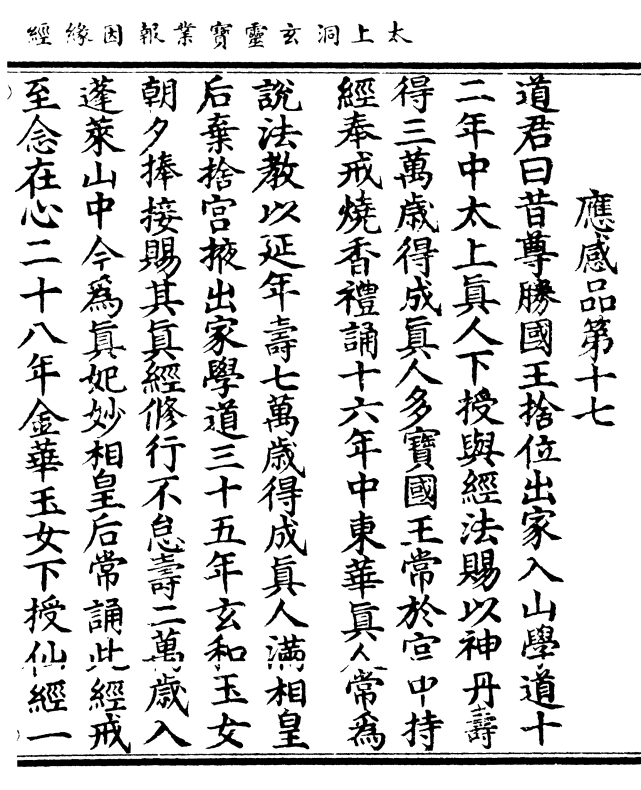 太上洞玄靈寶業報因緣經
應感品第十七
道君曰昔尊勝國王捨位出家入山學道十
二年中太上眞人下授與經法賜以神丹壽
得三萬歲得成眞人多寶國王常於宫中持
經奉戒燒香禮誦十六年中東華眞人常爲
說法教以延年壽七萬歲得成眞人滿相皇
后棄捨宫掖出家學道三十五年玄和玉女
朝夕捧接賜其眞經修行不怠壽二萬歲入
蓬萊山中今爲眞妃妙相皇后常誦此經戒
至念在心二十八年金華玉女下授仙經一